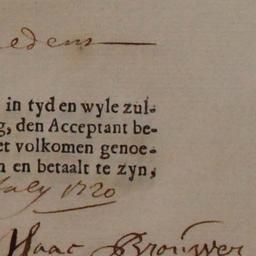 edens
in tyd en wyle zul-
g, den Acceptant be-
et volkomen genoe-
n en betaalt te zyn,
July 1720
Isaac Brouwer